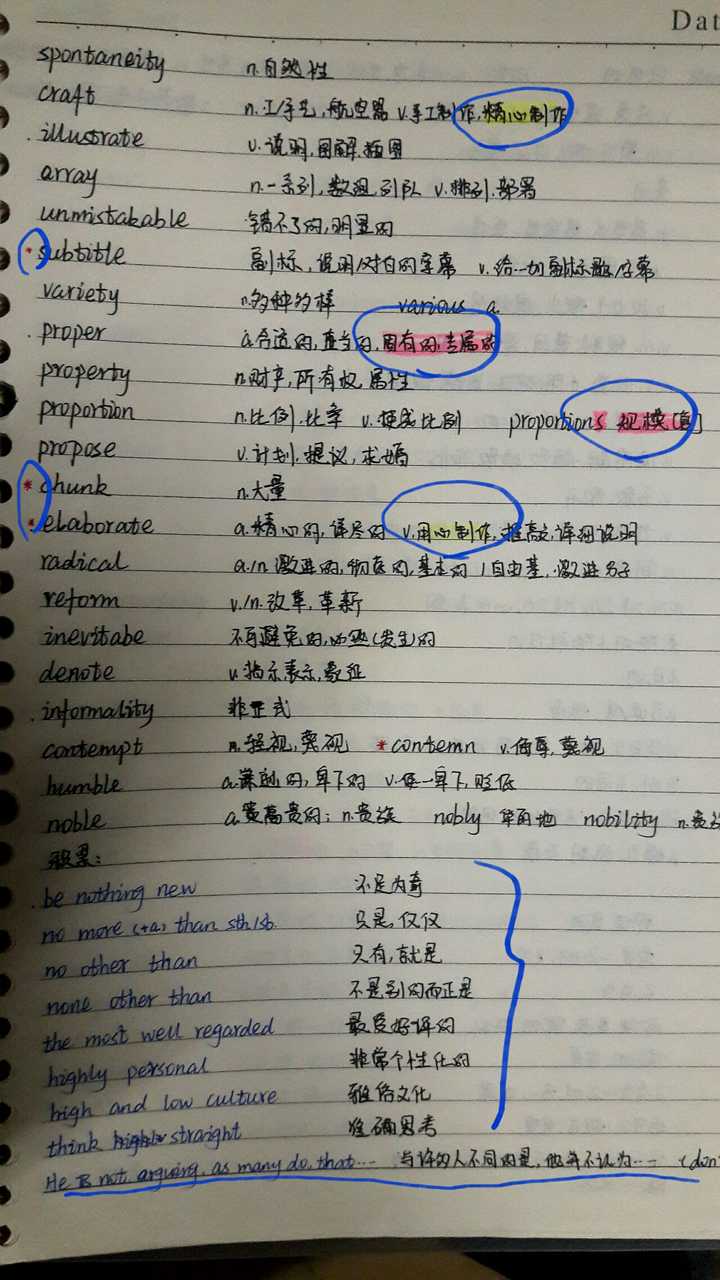 Dat
spontaneity n.自然性
craft n.工/手艺,航空器 v.手工制作,精心制作
illustrate v.说明,图解,插图
array n.一系列,数组,列队 v.排列,部署
unmistakable 错不了的,明显的
*subtitle 副标,说明/对白的字幕 v.给…加副标题/字幕
variety n.多种多样 various a.
proper a.合适的,直当的,固有的,专属的
property n.财享,所有权,属性
proportion n.比例,比率 v.使成比例 proportions 规模[复]
propose v.计划,提议,求婚
*chunk n.大量
*elaborate a.精心的,详尽的 v.用心制作,推高,详细说明
radical a./n.激进的,彻底的,基本的/自由基,激进分子
reform v./n.改革,革新
inevitabe 不可避免的,必然(发生)的
denote v.指示,表示,象征
informality 非正式
contempt n.轻视,蔑视 *contemn v.侮辱,蔑视
humble a.谦逊的,卑下的 v.使…卑下,贬低
noble a.崇高贵的; n.贵族 nobly 华丽地 nobility n.贵族
be nothing new 不足为奇
no more (+a.) than sth/sb. 只是,仅仅
no other than 只有,就是
none other than 不是别的而正是
the most well regarded 最受好评的
highly personal 非常个性化的
high and low culture 雅俗文化
think straight 准确思考
He is not arguing, as many do, that…… 与许多人不同的是,他并不认为…… (don'